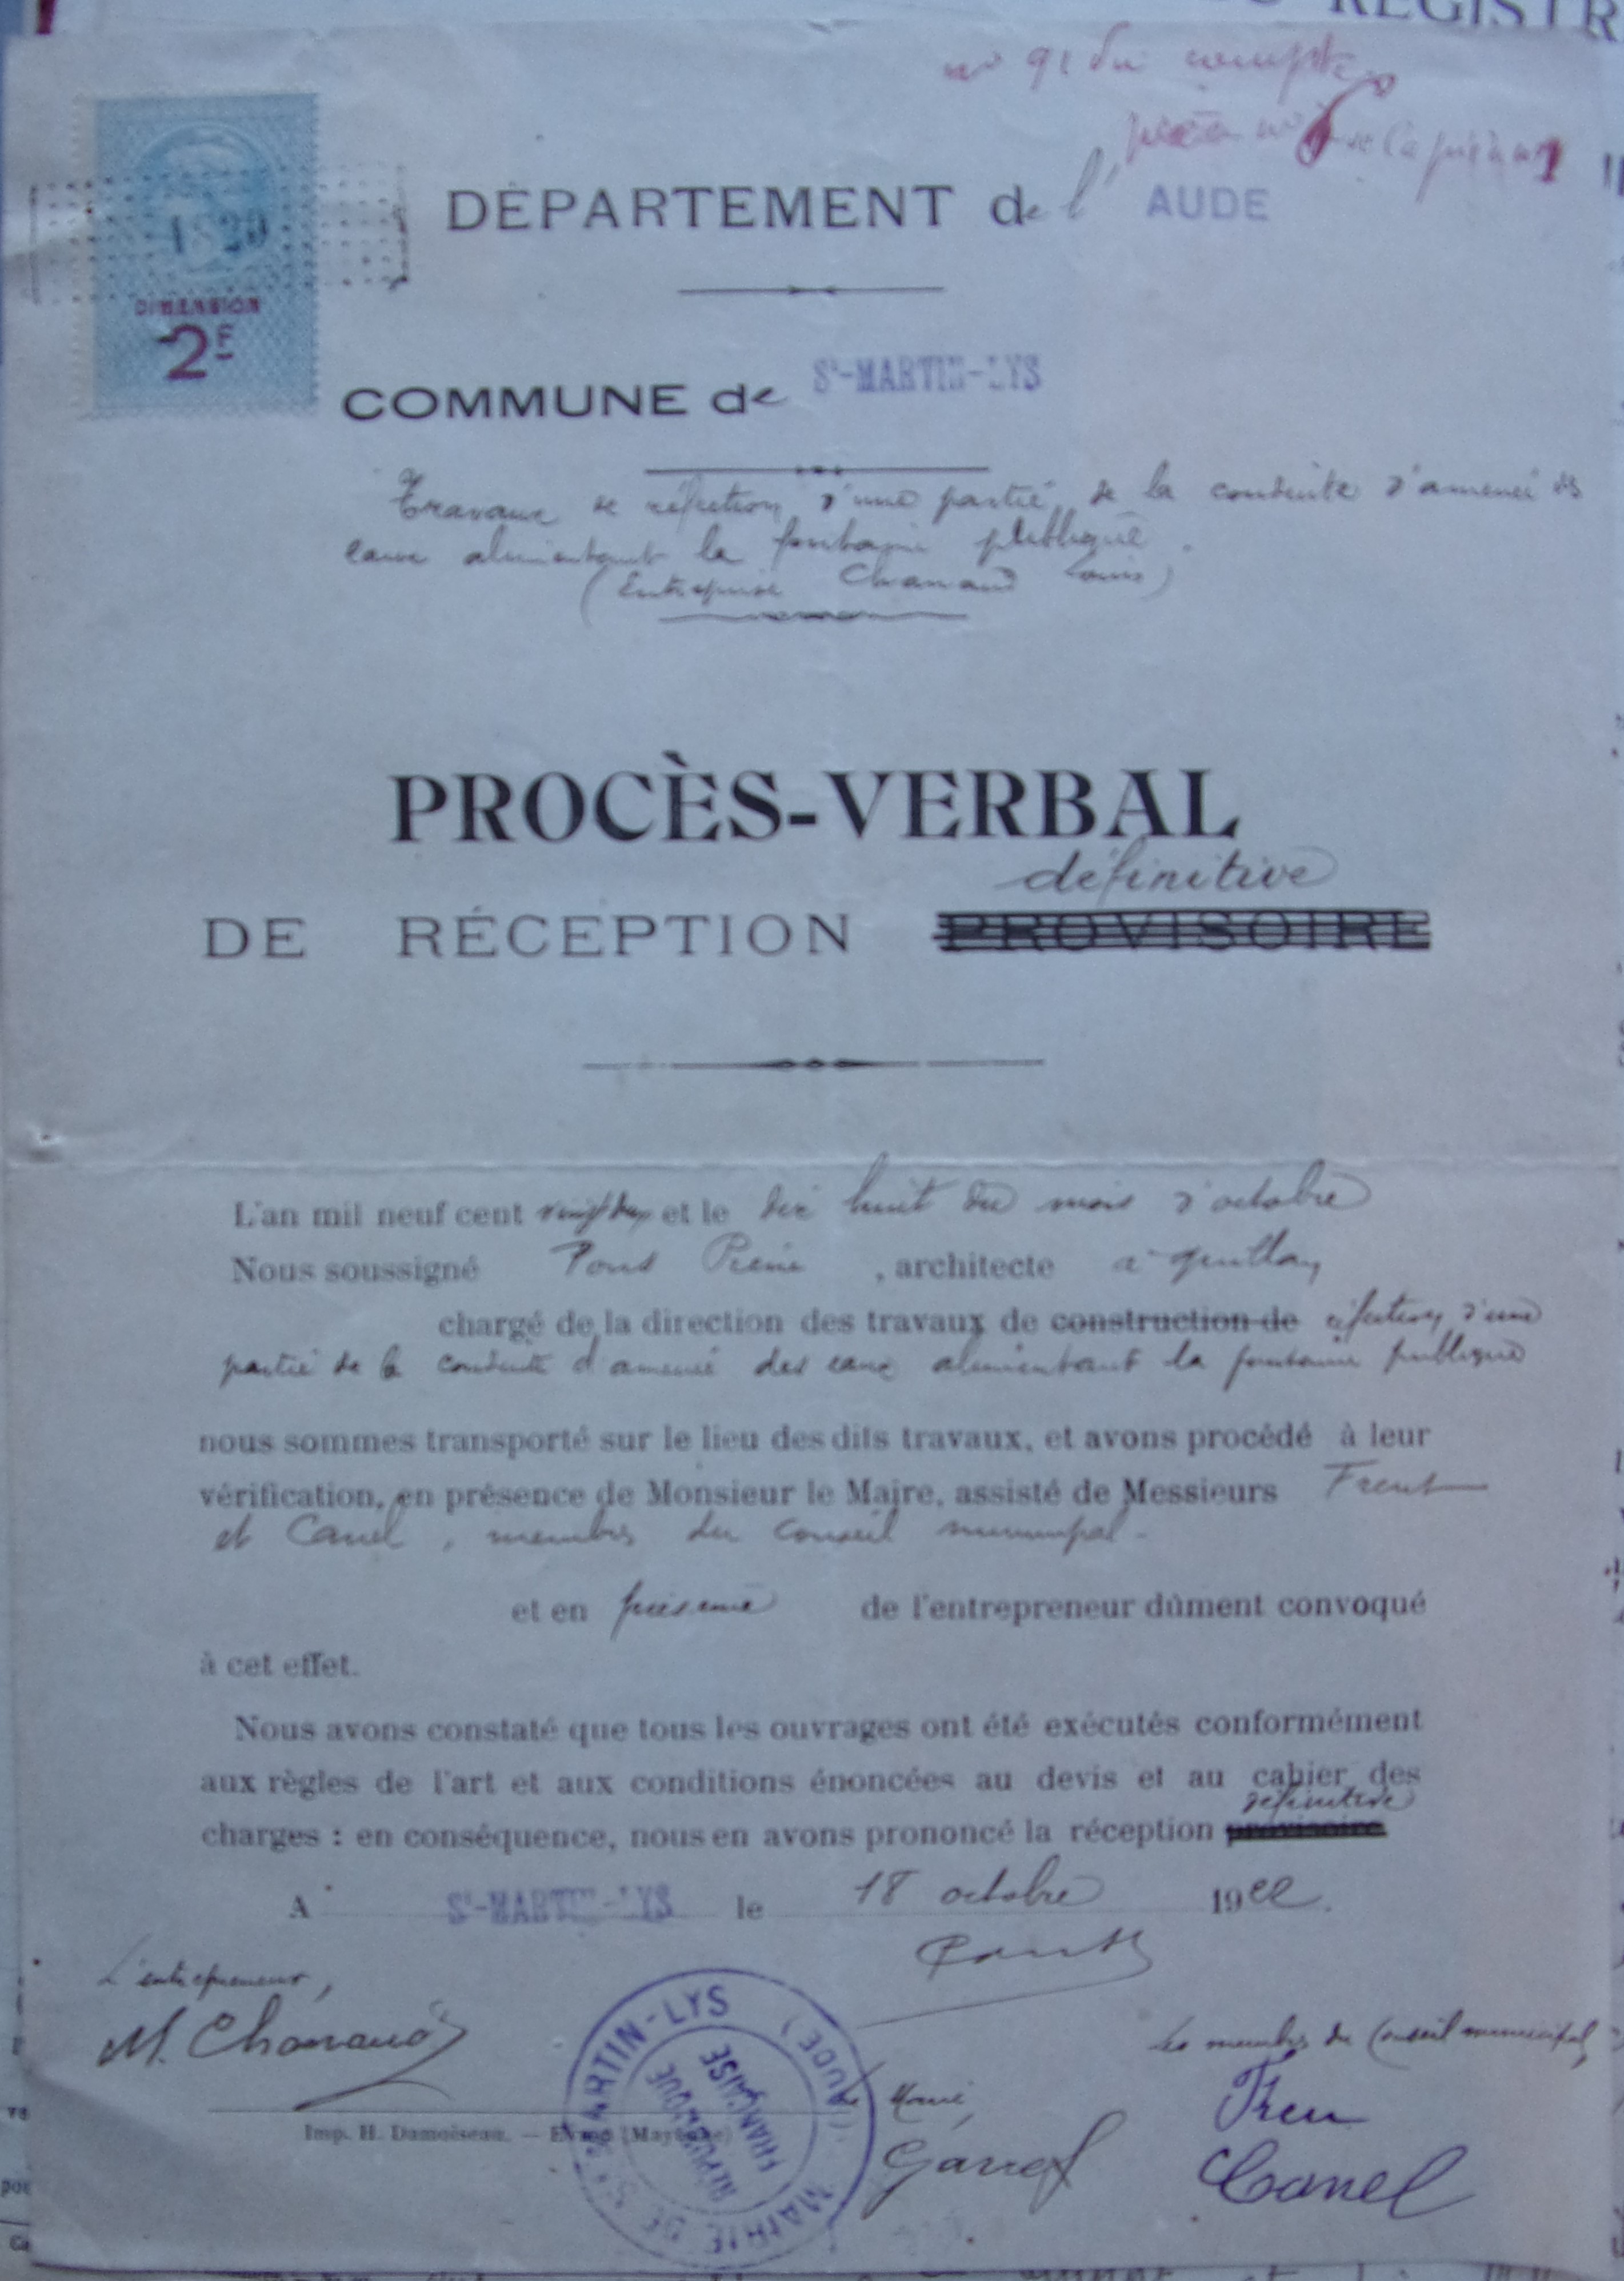 REGISTR
no 91 du compte
pièce no
DÉPARTEMENT de l' AUDE
1820
DIMENSION
2F
COMMUNE de St-MARTIN-LYS
Travaux de réfection d'une partie de la conduite d'amenée des
eaux alimentant la fontaine publique.
(Entreprise Chanaud Louis)
PROCÈS-VERBAL
définitive
DE RÉCEPTION PROVISOIRE
L'an mil neuf cent vingt deux et le dix huit du mois d'octobre
Nous soussigné Pons Pierre, architecte à Quillan
chargé de la direction des travaux de construction de réfection d'une
partie de la conduite d'amenée des eaux alimentant la fontaine publique
nous sommes transporté sur le lieu des dits travaux, et avons procédé à leur
vérification, en présence de Monsieur le Maire, assisté de Messieurs
et Canel, membres du Conseil municipal.
et en présence de l'entrepreneur dûment convoqué
à cet effet.
Nous avons constaté que tous les ouvrages ont été exécutés conformément
aux règles de l'art et aux conditions énoncées au devis et au cahier des
définitive
charges : en conséquence, nous en avons prononcé la réception provisoire
A St-MARTIN-LYS le 18 octobre 1922.
L'entrepreneur,
M. Chanaud
Les membres du Conseil municipal,
Le Maire,
Canel
MAIRIE DE St MARTIN-LYS (AUDE)
RÉPUBLIQUE FRANÇAISE
Imp. H. Damoiseau. — Evron (Mayenne)